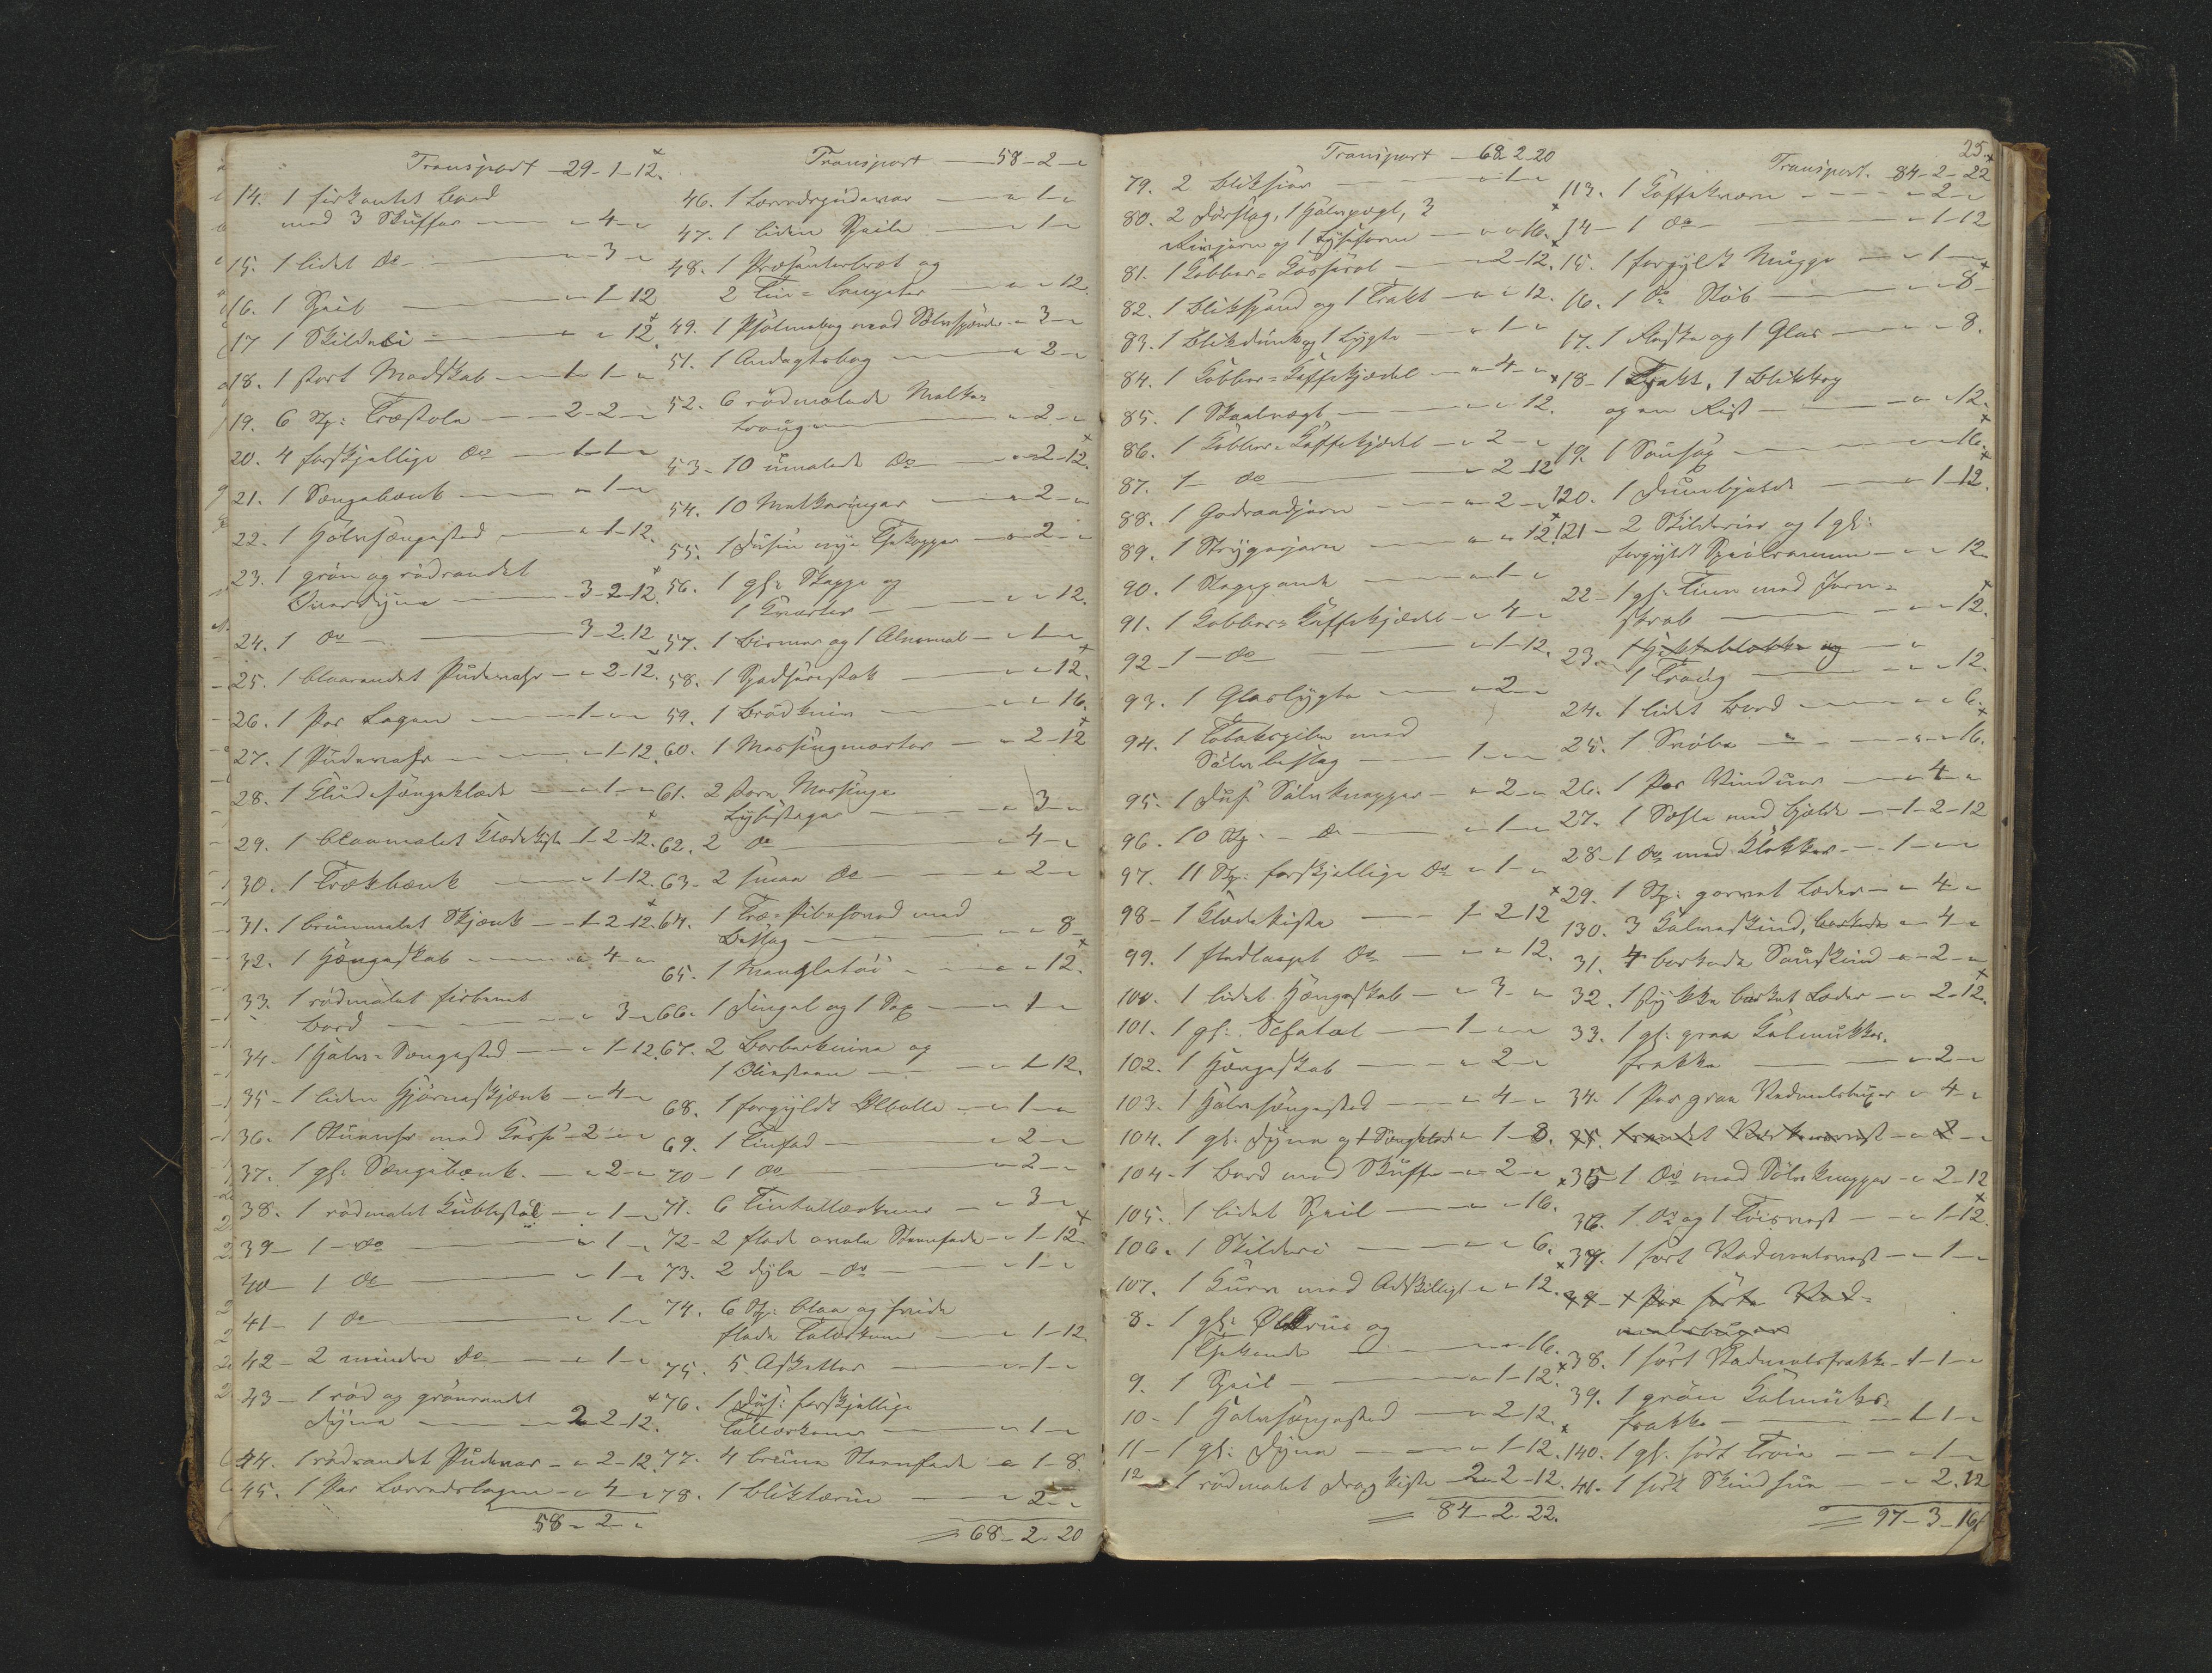 Transport - 29-1-12.
14. 1 firkantet Bord
med 3 Skuffer - " 4 - "
15. 1 lidet Do - " 3 "
16. 1 Speil - " 1-12
17 1 Skilderi - " " 12.
18. 1 stort Madskab - 1-1-"
19. 6 Stk: Træstole - 2-2-"
20. 4 forskjellige Do - 1-1-"
21. 1 Sengebænk - " 1 - "
22. 1 Halvsengested - " 1-12.
23. 1 grøn og rødrandet
Overdyne - 3-2-12.
24. 1 Do - 3-2-12
25. 1 blaarandet Pudevahr - " 2-12.
26. 1 Par Lagen - 1-"-"
27. 1 Pudevahr - " 1-12.
28. 1 Kludesengeklæde - " 1 - "
29. 1 blaamalet Klædekiste 1-2-12.
30. 1 Trækbænk - " 1-12.
31. 1 brunmalet Skjænk - 1-2-12.
32. 1 Hængeskab - " 4 - "
33. 1 rødmalet firbenet
Bord - " 3 - "
34 - 1 Halv-Sengested - " 1-12.
35 - 1 liden Hjørneskjænk - " 4 - "
36. 1 Stueuhr med Kasse - 2 - " "
37. 1 gl: Sengebænk. - " 2 - "
38. 1 rødmalet Kubbestol - " 1 - "
39 - 1 - Do - " 1 - "
40 - 1 Do - " 1 - "
41 - 1 Do - " 1 - "
42 - 2 mindre Do - " 1 - "
43 - 1 rød og grønrandet
Dyne - 2-2-12.
44. 1 rødrandet Pudevar - " 2-12.
45. 1 Par Lærredslagen - " 4 - "
58 - 2 - "
Transport - 58-2-"
46. 1 Lærredspudevar - " 1 - "
47. 1 liden Speile - " 1 - "
48. 1 Præsenterbræt og
2 Tin- - " " 12.
49. 1 Psalmebog med Sølvspænde " 3 - "
51. 1 Andagtsbog - " 2 - "
52. 6 rødmalede Melke-
trauge - " 2 - "
53 - 10 umalede Do - " 2-12.
54. 10 Melkeringer - " 2 - "
55. 1 Dusin nye Thekopper - " 2 - "
56. 1 gl: Skjeppe og
1 Kvarter - " " 12.
57. 1 Bismer og 1 Alenmaal - " 1 - "
58. 1 Spadserestok - " " 12.
59. 1 Brødkniv - " " 16.
60. 1 Messingmorter - " 2-12
61. 2 store Messinge
Lysestager - " 3 - "
62. 2 Do - " 4 - "
63 - 2 smaa Do - " 2 - "
64. 1 Træ-Pibehoved med
Beslag - " " 8 -
65. 1 Mangletøi - " " 12.
66. 1 Fingal og 1 Sax - " 1 - "
67. 2 Barberknive og
1 Oliesteen - " 1-12.
68. 1 forgyldt Ølbolle - " 1 - "
69. 1 Tinfad - " 2 - "
70 - 1 Do - " 2 - "
71. 6 Tintallerkener - " 3 - "
72 - 2 flade ovale Steenfade - " 1-12
73. 2 dybe - Do - " 1 - "
74. 6 Stk: blaa og hvide
flade Talerkener - " 1-12.
75. 5 Asketter - " 1 - "
76. 1 Dus: forskjellige
Tallerkener - " 1 - "
77. 4 brune Steenfade - " 1-8.
78. 1 Bliktærin - " 2 - "
= 68-2-20
Transport - 68-2-20
79. 2 Bliksier - " 1 - "
80. 2 Dørslag, 1 Halvpægl, 3
Rivjern og 1 Lyseform - " " 16.
81. 1 Kobber-Kasserol - " 2-12.
82. 1 Blikspand og 1 Trakt - " " 12.
83. 1 Blikdunk og 1 Lygte - " 1 - "
84. 1 Kobber-Kaffekjedel - " 4 - "
85. 1 Skaalvægt - " " 12.
86. 1 Kobber-Kaffekjedel - " 2 - "
87. 1 - Do - " 2-12
88. 1 Goderaadjern - " 2 - "
89. 1 Strygejern - " " 12.
90. 1 Stegepande - " 1 - "
91. 1 Kobber-Kaffekjedel - " 4 - "
92 - 1 - Do - " 1-12.
93. 1 Glaslygte - " 2 - "
94. 1 Tobakspibe med
Sølvbeslag - 1 - " "
95. 1 Dus: Sølvknapper - " 2 - "
96. 10 Stk: - Do - " 1 - "
97. 11 Stk: forskjellige Do - " 1 - "
98 - 1 Klædekiste - 1-2-12
99. 1 fladlaaget Do - " " 12.
100. 1 lidet Hængeskab - " 3 - "
101. 1 gl: Schatol - 1 - " "
102. 1 Hængeskab - " 2 - "
103. 1 Halvsengested - " 4 - "
104. 1 gl: Dyne og 1 Sengklæde " 1-8.
104 - 1 Bord med Skuffe - " 2 - "
105. 1 lidet Speil - " " 16.
106. 1 Skilderi - " " 6.
107. 1 Kurv med Adskilligt - " " 12.
8 - 1 gl: Ølkrus og
1 Thekande - " " 16.
9. 1 Speil - " 1-12.
10 - 1 Halvsengested - " 2-12.
11 - 1 gl: Dyne - " 1-12.
12 - 1 rødmalet Dragkiste 2-2-12.
= 84-2-22.
25.
Transport. 84-2-22
113. 1 Kaffekværn - " 2 - "
14 - 1 Do - " 1-12
15. 1 forgyldt Mugge - " 1 - "
16. 1 Do Stob - " " 8 -
17. 1 Flaske og 1 Glas - " " 8.
18 - 1 Trakt, 1 Blikkrog
og en Rist - " " 12.
19. 1 Sausax - " " 16.
120. 1 Dumbjelde - " 1-12.
121 - 2 Skilderier og 1 gl:
forgyldt Speilramme - " " 12.
22 - 1 gl: Tiine med Jern-
skrab - " " 12.
23. 1 Hekkeblokke og - "
1 Traug - " " 12.
24. 1 lidet Bord - " " 6.
25. 1 Snøbe - " " 16.
26. 1 Par Vinduer - " 4 - "
27. 1 Sæhle med Bjelde - 1-2-12
28 - 1 Do med Klokker - 1 - " "
29. 1 Stk: garvet Læder - " 4 - "
130. 3 Kalveskind, barkede " 4 - "
31. 4 barkede Saueskind - " 2 - "
32. 1 stykke barket Læder - " 2-12.
33. 1 gl: graa Kalmukkes-
frakke - " 2 - "
34. 1 Par graa Vadmelsbuxer " 4 - "
35. 1 randet - " 2 - "
35 - 1 Do med Sølvknapper - " 2-12
36. 1 Do og 1 Tøivest - " 1-12.
37. 1 sort Vadmelsvest - " 1 - "
39 - 1 Par sorte Vad-
melsbuxer
38. 1 sort Vadmelsfrakke - 1-1-"
39. 1 grøn Kalmuks-
frakke - 1-1-"
140. 1 gl: sort Trøie - " 1 - "
41. 1 sort Skindhue - " 2.12
= 97-3-16